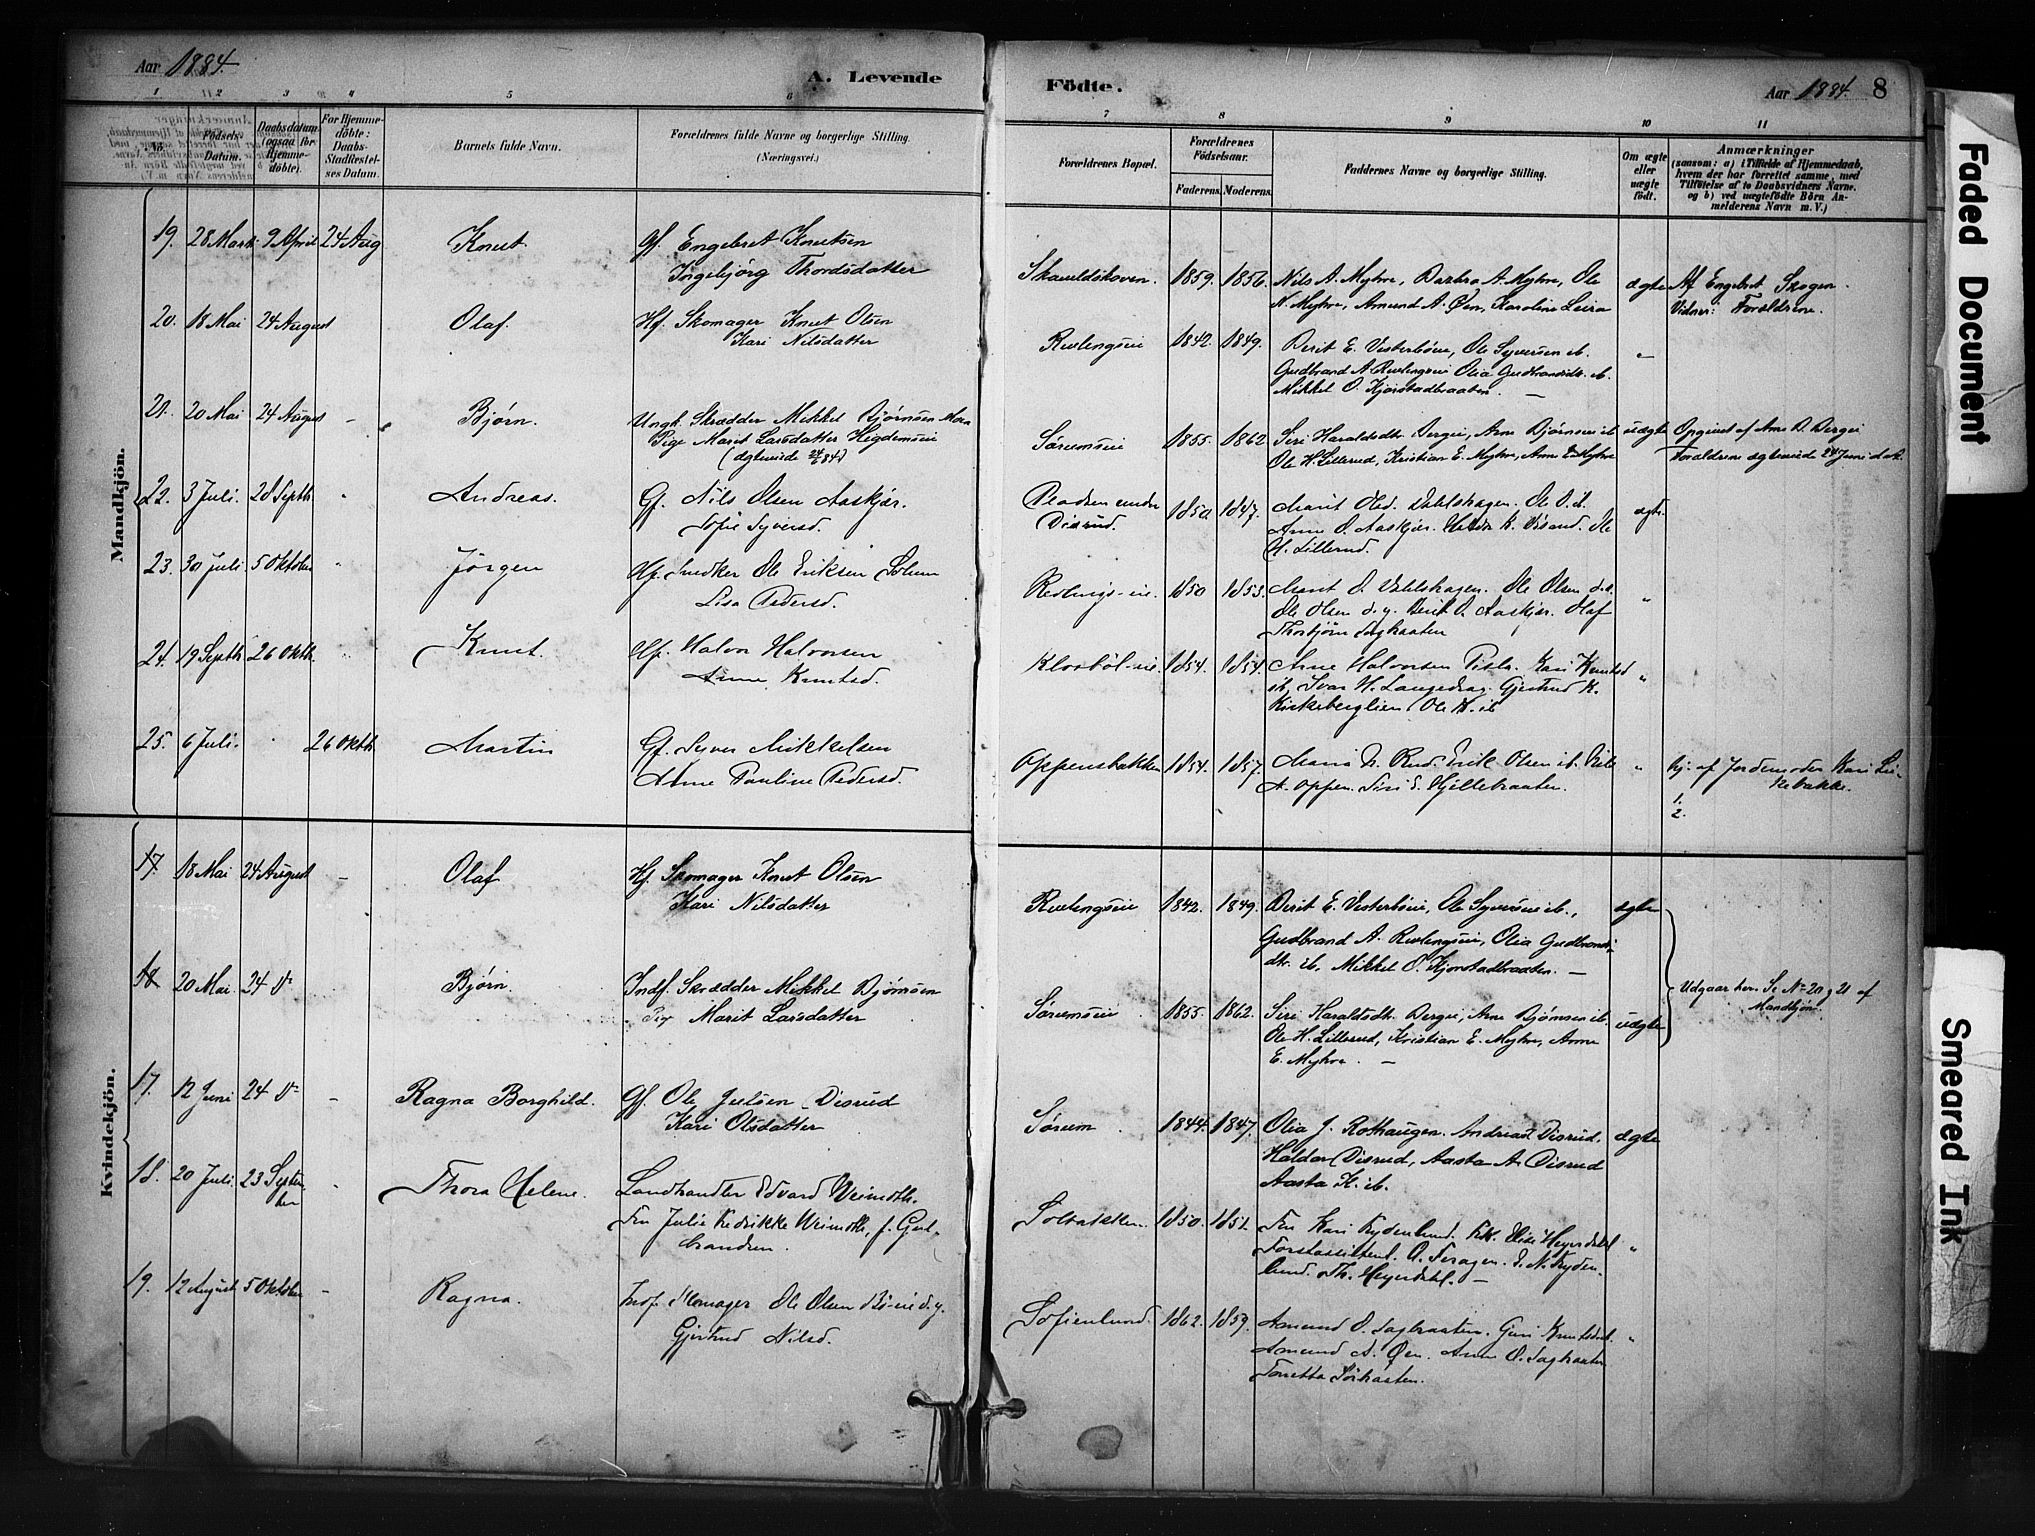 Aar 1884.
A. Levende
Födte.
Aar 1884. 8
1 2 3 4 5 6 7 8 9 10 11
No.
Födsels-
Datum.
Daabsdatum
(ogsaa for
Hjemme-
döbte).
For Hjemme-
döbte:
Daabs-
Stadfæstel-
ses Datum.
Barnets fulde Navn.
Forældrenes fulde Navne og borgerlige Stilling.
(Næringsvei.)
Forældrenes Bopæl.
Forældrenes
Födselsaar.
Faderens. Moderens.
Faddernes Navne og borgerlige Stilling.
Om ægte
eller
uægte
födt.
Anmærkninger
(saasom: a) i Tilfælde af Hjemmedaab,
hvem der har forrettet samme, med
Tilföielse af to Daabsvidners Navne.
og b) ved uægtefödte Börn An-
melderens Navn m. V.)
Mandkjön.
19. 28 Marts 9 April 24 Aug Knut Gf. Engebret Knutsen
Ingebjørg Thordsdatter
1859. 1856. Nils A. Myhre, Barbro A. Myhre, Ole
N. Myhre, Amund A. Øen, Karoline Leira
ægte Af Engebret Skogen.
Vidner: Forældrene.
20. 18 Mai 24 August Olaf. Hf. Skomager Knut Olsen
Kari Nilsdatter
Revlingseie 1842. 1849. Berit E. Vesterbøeie, Ole Syversen ib.
Gudbrand A. Revlingseie Olia Gudbrandsdtr. ib.
Mikkel O. Kjørstadbraaten. —
21. 20 Mai 24 August - Bjørn. Ungk. Skrædder Mikkel Bjørnsen Moen
Pige Marit Larsdatter Hegdemseie
(ægteviede 24/6 84)
Sørumseie 1855. 1862 Siri Haralstdtr Bergei, Arne Bjørnsen ib
Ole H. Lillerud, Kristian E. Myhre, Anne E. Myhre
uægte Opgivet af Arne B. Bergei
Forældrene ægteviede 24 Juni d. A.
22. 3 Juli. 28 Septb. " Andreas. Gf. Nils Olsen Aaskjær.
Sofie Syversd.
Pladsen under
Disrud. 1850 1847. Marit Olsd. Dahlshagen. Ole O. ib.
Anne O. Aaskjær. Disrud. Ole
H. Lillerud.
ægte.
23. 30 Juli. 5 Oktober " Jørgen Hf. Snedker Ole Eriksen Solum
Lisa Pedersd.
Revlings-eie. 1850 1853. Marit O. Dahlshagen. Ole Olsen d.e.
Ole Olsen d.y. Berit O. Aaskjær. Olaf
Thorbjørn Sagbraaten "
24. 19 Septb. 26 Oktb. " Knut. Hf. Halvor Halvorsen
Anne Knutsd.
Klosbøl-eie. 1854. 1854. Arne Halvorsen Kari Knutsd
ib, Ivar H. Langedrag. Gjertrud K.
Kirkeberglien, Ole K. ib "
25. 6 Juli. 26 Oktb. Martin Gf. Syver Mikkelsen
Anne Pauline Pedersd.
Oppensbakken 1854. 1857. Maria N. Rud. Erik Olsen ib.
A. Oppen. Siri E. Hjellebraaten. "
Hj. af Jordemoder Kari
1.
2.
Kvindekjön.
17 18 Mai 24 August - Olaf Hf. Skomager Knut Olsen
Kari Nilsdatter
Revlingseie 1842. 1849. Berit E. Vesterbøeie, Ole Syversen ib.,
Gudbrand A. Revlingseie, Olia Gudbrands-
dtr. ib, Mikkel O. Kjørstadbraaten. —
ægte
18 20 Mai. 24 D° - Bjørn. Indf. Skrædder Mikkel Bjørnsen
Pige Marit Larsdatter
Sørumseie 1855. 1862. Siri Haralstdtr Bergei, Arne Bjørnsen ib.
Ole H. Lillerud, Kristian E. Myhre, Anne
E. Myhre. —
uægte
Udgaar her. Se N° 20 og 21 af
Mandkjøn.
17. 12 Juni 24 D° - Ragna Borghild. Gf. Ole Julsen Disrud
Kari Olsdatter
Sørum 1844. 1847. Olia J. Rothaugen. Andreas Disrud.
Haldor Disrud, Aasta A. Disrud
Aasta K. ib.
ægte
18. 20 Juli 23 Septem-
ber - Thora Helene. Landhandler Edvard Weimoth.
Fru Julie Fredrikke Weimoth, f. Gul-
brandsen.
Solbakken. 1850. 1852. Fru Kari Frydenlund. Frk. Elise Heyerdahl
Forstassistent O. Feragen. I. N. Fryden-
lund. Th. Heyerdahl. — "
19. 12 August 5 Oktober - Ragna. Indf. Skomager Ole Olsen Bø-eie d.y.
Gjertrud Nilsd.
Sofienlund. 1862. 1859. Amund O. Sagbraaten. Guri Knutsdtr.
Amund A. Øen. Anne O. Sagbraaten
Tonetta Sørbraaten. "
Faded Document
Smeared Ink